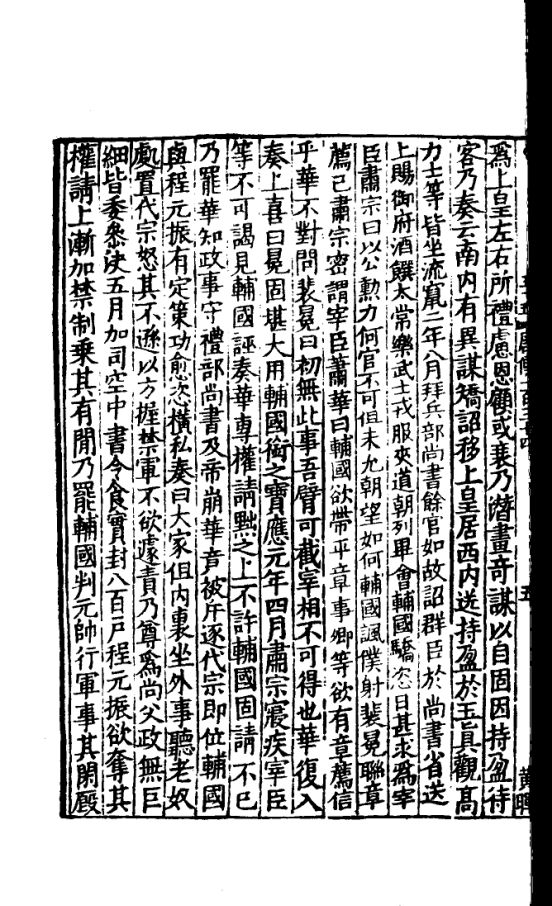 爲上皇左右所禮慮恩顧或衰乃潛畫奇謀以自固因持盈待
客乃奏云南内有異謀矯詔移上皇居西内送持盈於玉眞觀髙
力士等皆坐流竄二年八月拜兵部尚書餘官如故詔群臣於尚書省送
上賜御府酒饌太常樂武士戎服夾道朝列畢會輔國驕恣日甚求爲宰
臣肅宗曰以公勲力何官不可但未允朝望如何輔國諷僕射裴冕聯章
薦己肅宗密謂宰臣蕭華曰輔國欲帶平章事卿等欲有章薦信
乎華不對問裴冕曰初無此事吾臂可截宰相不可得也華復入
奏上喜曰冕固堪大用輔國銜之寶應元年四月肅宗寢疾宰臣
等不可謁見輔國誣奏華專權請黜之上不許輔國固請不已
乃罷華知政事守禮部尚書及帝崩華竟被斥逐代宗即位輔國
與程元振有定策功愈恣横私奏曰大家但内裏坐外事聽老奴
處置代宗怒其不遜以方握禁軍不欲遽責乃尊爲尚父政無巨
細皆委參決五月加司空中書令食實封八百戸程元振欲奪其
權請上漸加禁制乗其有閒乃罷輔國判元帥行軍事其閑廐